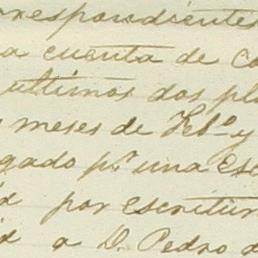 orrespondientes
a cuenta de co
ultimos dos pla
s meses de Febº y
gado pr. una esc
por escritur
a D. Pedro d